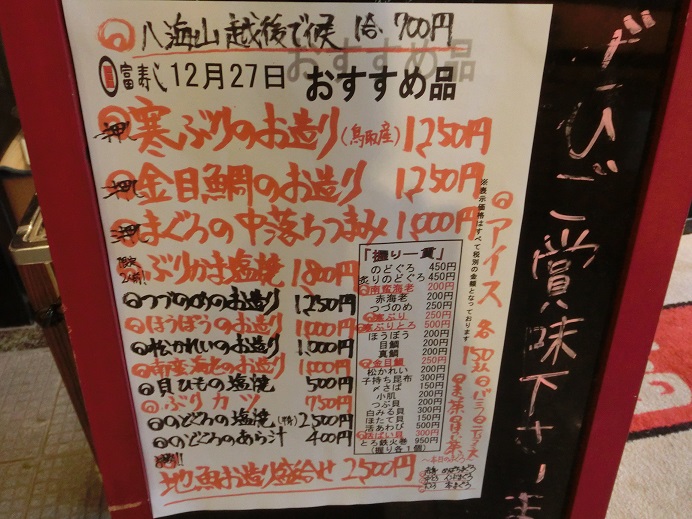 八海山 越後で候 1合 700円
富寿し 12月27日 おすすめ品
寒ぶりのお造り(鳥取産) 1250円
金目鯛のお造り 1250円
まぐろの中落ちつまみ 1,000円
ぶりかま塩焼 1,800円
つづのめのお造り 1,250円
ほうぼうのお造り 1,000円
松かれいのお造り 1,000円
南蛮海老のお造り 1,000円
貝ひもの塩焼 500円
ぶりカツ 750円
のどぐろの塩焼 2,500円
のどぐろのあら汁 400円
地魚お造り盛合せ 2,500円
「握り一貫」
のどぐろ 450円
炙りのどぐろ 450円
南蛮海老 200円
赤海老 200円
つづのめ 200円
寒ぶり 250円
寒ぶりとろ 500円
ほうぼう 200円
目鯛 200円
真鯛 200円
金目鯛 250円
松かれい 200円
子持ち昆布 300円
〆さば 150円
小肌 200円
つぶ貝 200円
白みる貝 300円
ほたて貝 150円
活あわび 500円
活ばい貝 300円
とろ鉄火巻 950円
(握り各1個)
※表示価格はすべて税別の金額となっております
アイス 各150
バニラ
ぜひご賞味下さいま